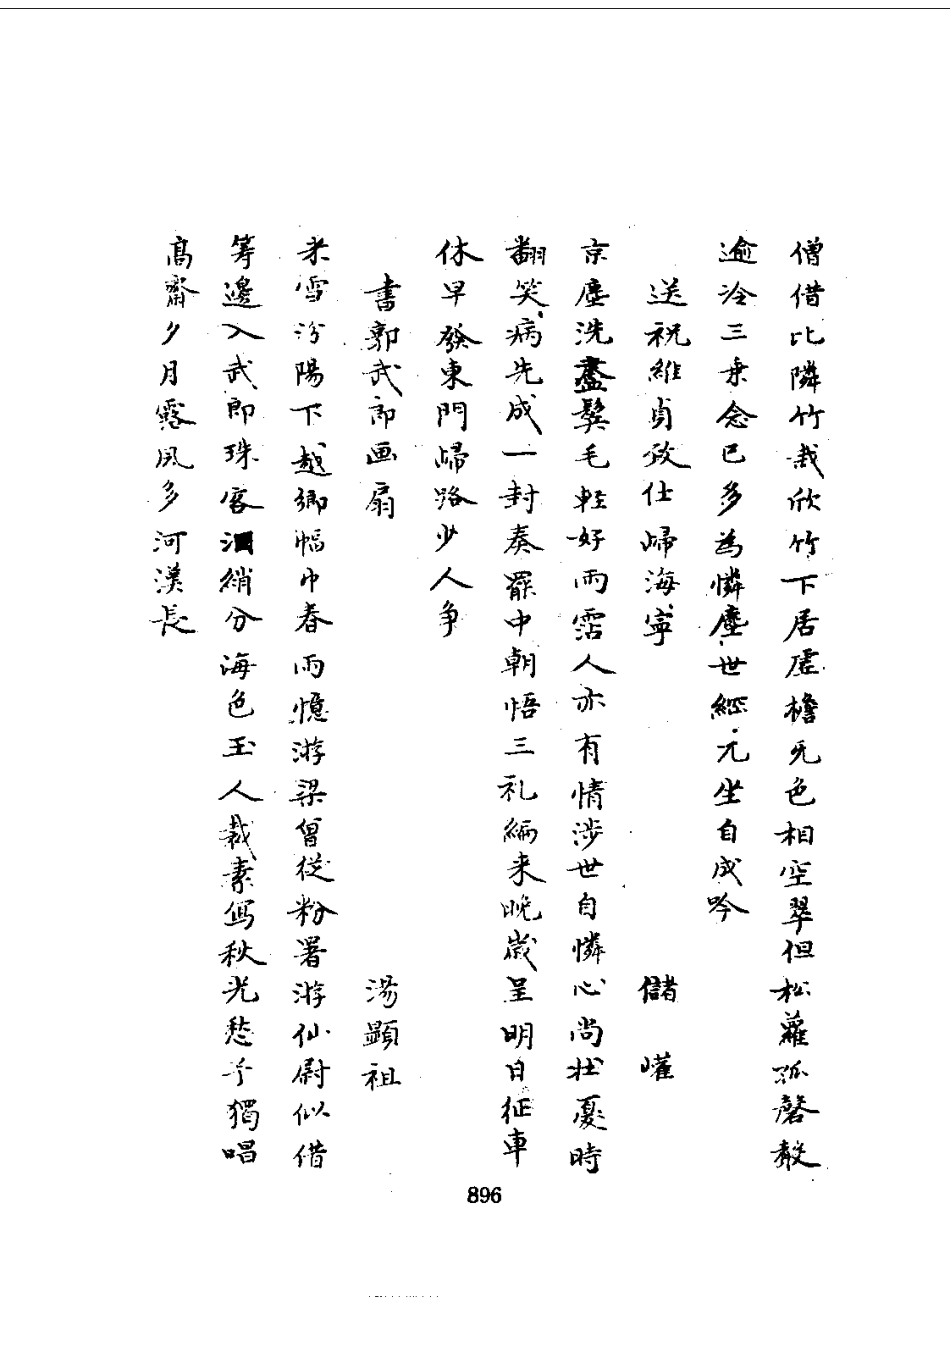 僧借比隣竹栽欣竹下居虛檐旡色相空翠但松蘿孤磬散
逾冷三乗念已多為憐塵世經元坐自成吟
送祝維貞致仕歸海寧 儲巏
京塵洗盡鬓毛輕好雨霑人亦有情涉世自憐心尚壯憂時
翻笑病先成一封奏罷中朝悟三礼編来晚歲呈明日征車
休早發東門歸路少人争
書郭武郎画扇 湯顯祖
米雪汾陽下越鄉幅巾春雨憶游梁曾從粉署游仙尉似借
筹邊入武郎珠客泪綃分海色玉人裁素寫秋光愁予獨唱
高齋夕月露風多河漢長
896